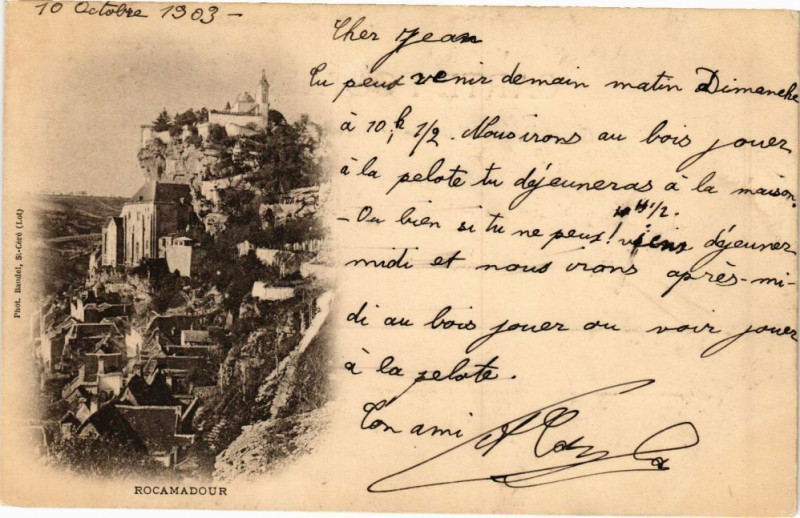 10 Octobre 1903 -
Cher Jean
Tu peux venir demain matin Dimanche
à 10h 1/2. Nous irons au bois jouer
à la pelote tu déjeuneras à la maison.
- Ou bien si tu ne peus! viens déjeuner
midi et nous irons après-mi-
di au bois jouer ou voir jouer
à la pelote.
Ton ami
Phot. Baudel, St-Céré (Lot)
ROCAMADOUR